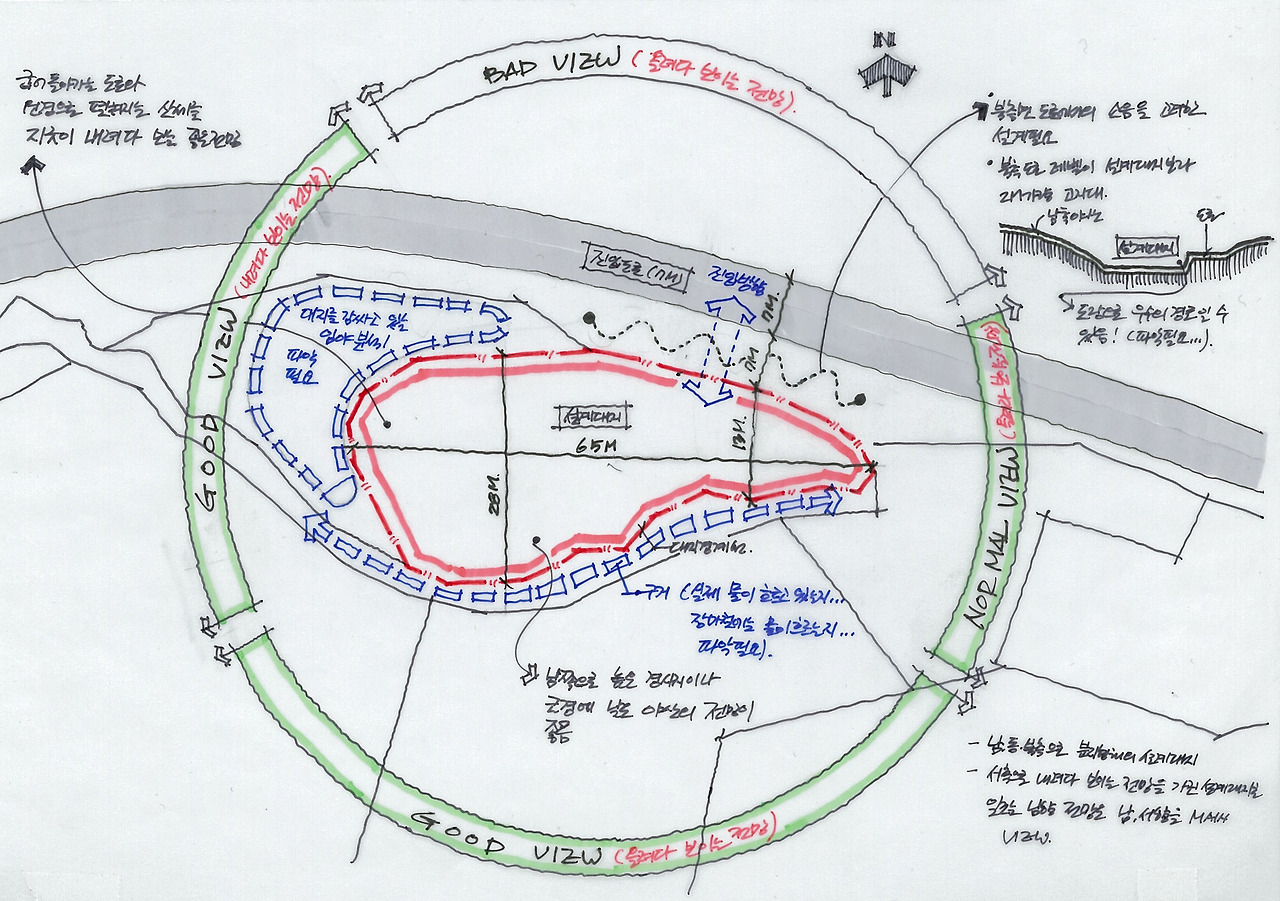 BAD VIEW (올려다 보이는 전망).
N
굽이 돌아가는 도로와
전경으로 펼쳐지는 산세를
지긋이 내려다 보는 좋은전망
북측면 도로에서의 소음을 고려한
설계필요
북측도로 레벨이 설계대지보다
고지대.
남측야산
도로
설계대지
도랑으로 우수의 경로일 수
있음! (파악필요...).
GOOD VIEW (내려다 보이는 전망).
진입도로(7M)
진입방향
7M.
7M
대지를 감싸고 있는
임야분석
파악
필요
설계대지
65M
13M.
28M.
NORMAL VIEW (올려다 보이는 전망)
대지경계선.
구거 (실제 물이 흐르고 있는지...
장마철에는 물이흐르는지...
파악필요).
남쪽으로 높은 경사지이나
근경에 낮은 야산의 전망이
좋음
GOOD VIEW (올려다 보이는 전망)
- 남.동.북측으로 분지형태의 설계대지
- 서측으로 내려다 보이는 전망을 가진 설계대지로
남향 전망은 남,서향을 MAIN
VIEW.